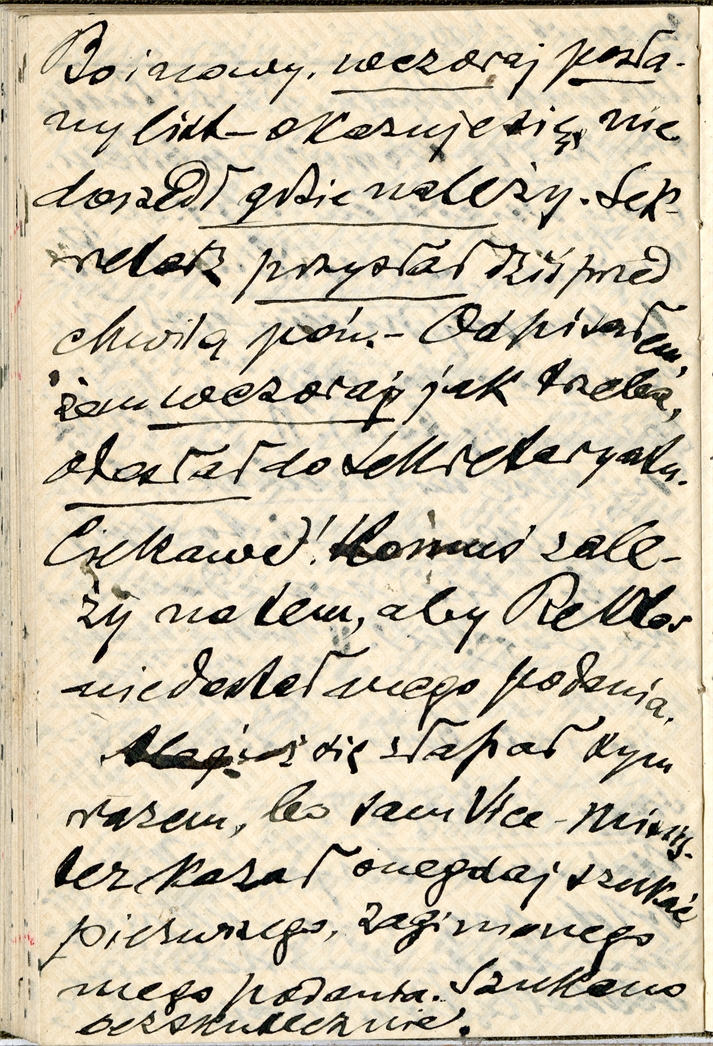 Bo i nowy, wczoraj posła-
ny list – okazuje się, nie
doszedł gdzie należy. Sek-
retarz przysłał dziś przed
chwilą pon. – Odpisałem,
żem wczoraj jak trzeba,
odesłał do sekretaryatu.
Ciekawe! Komuś zale-
ży na tem, aby Rektor
nie dostał mego podania.
się złapał tym
razem, bo sam Vice-Minis-
ter kazał onegdaj szukać
pierwszego, zaginionego
mego podania. Szukano
bezskutecznie.